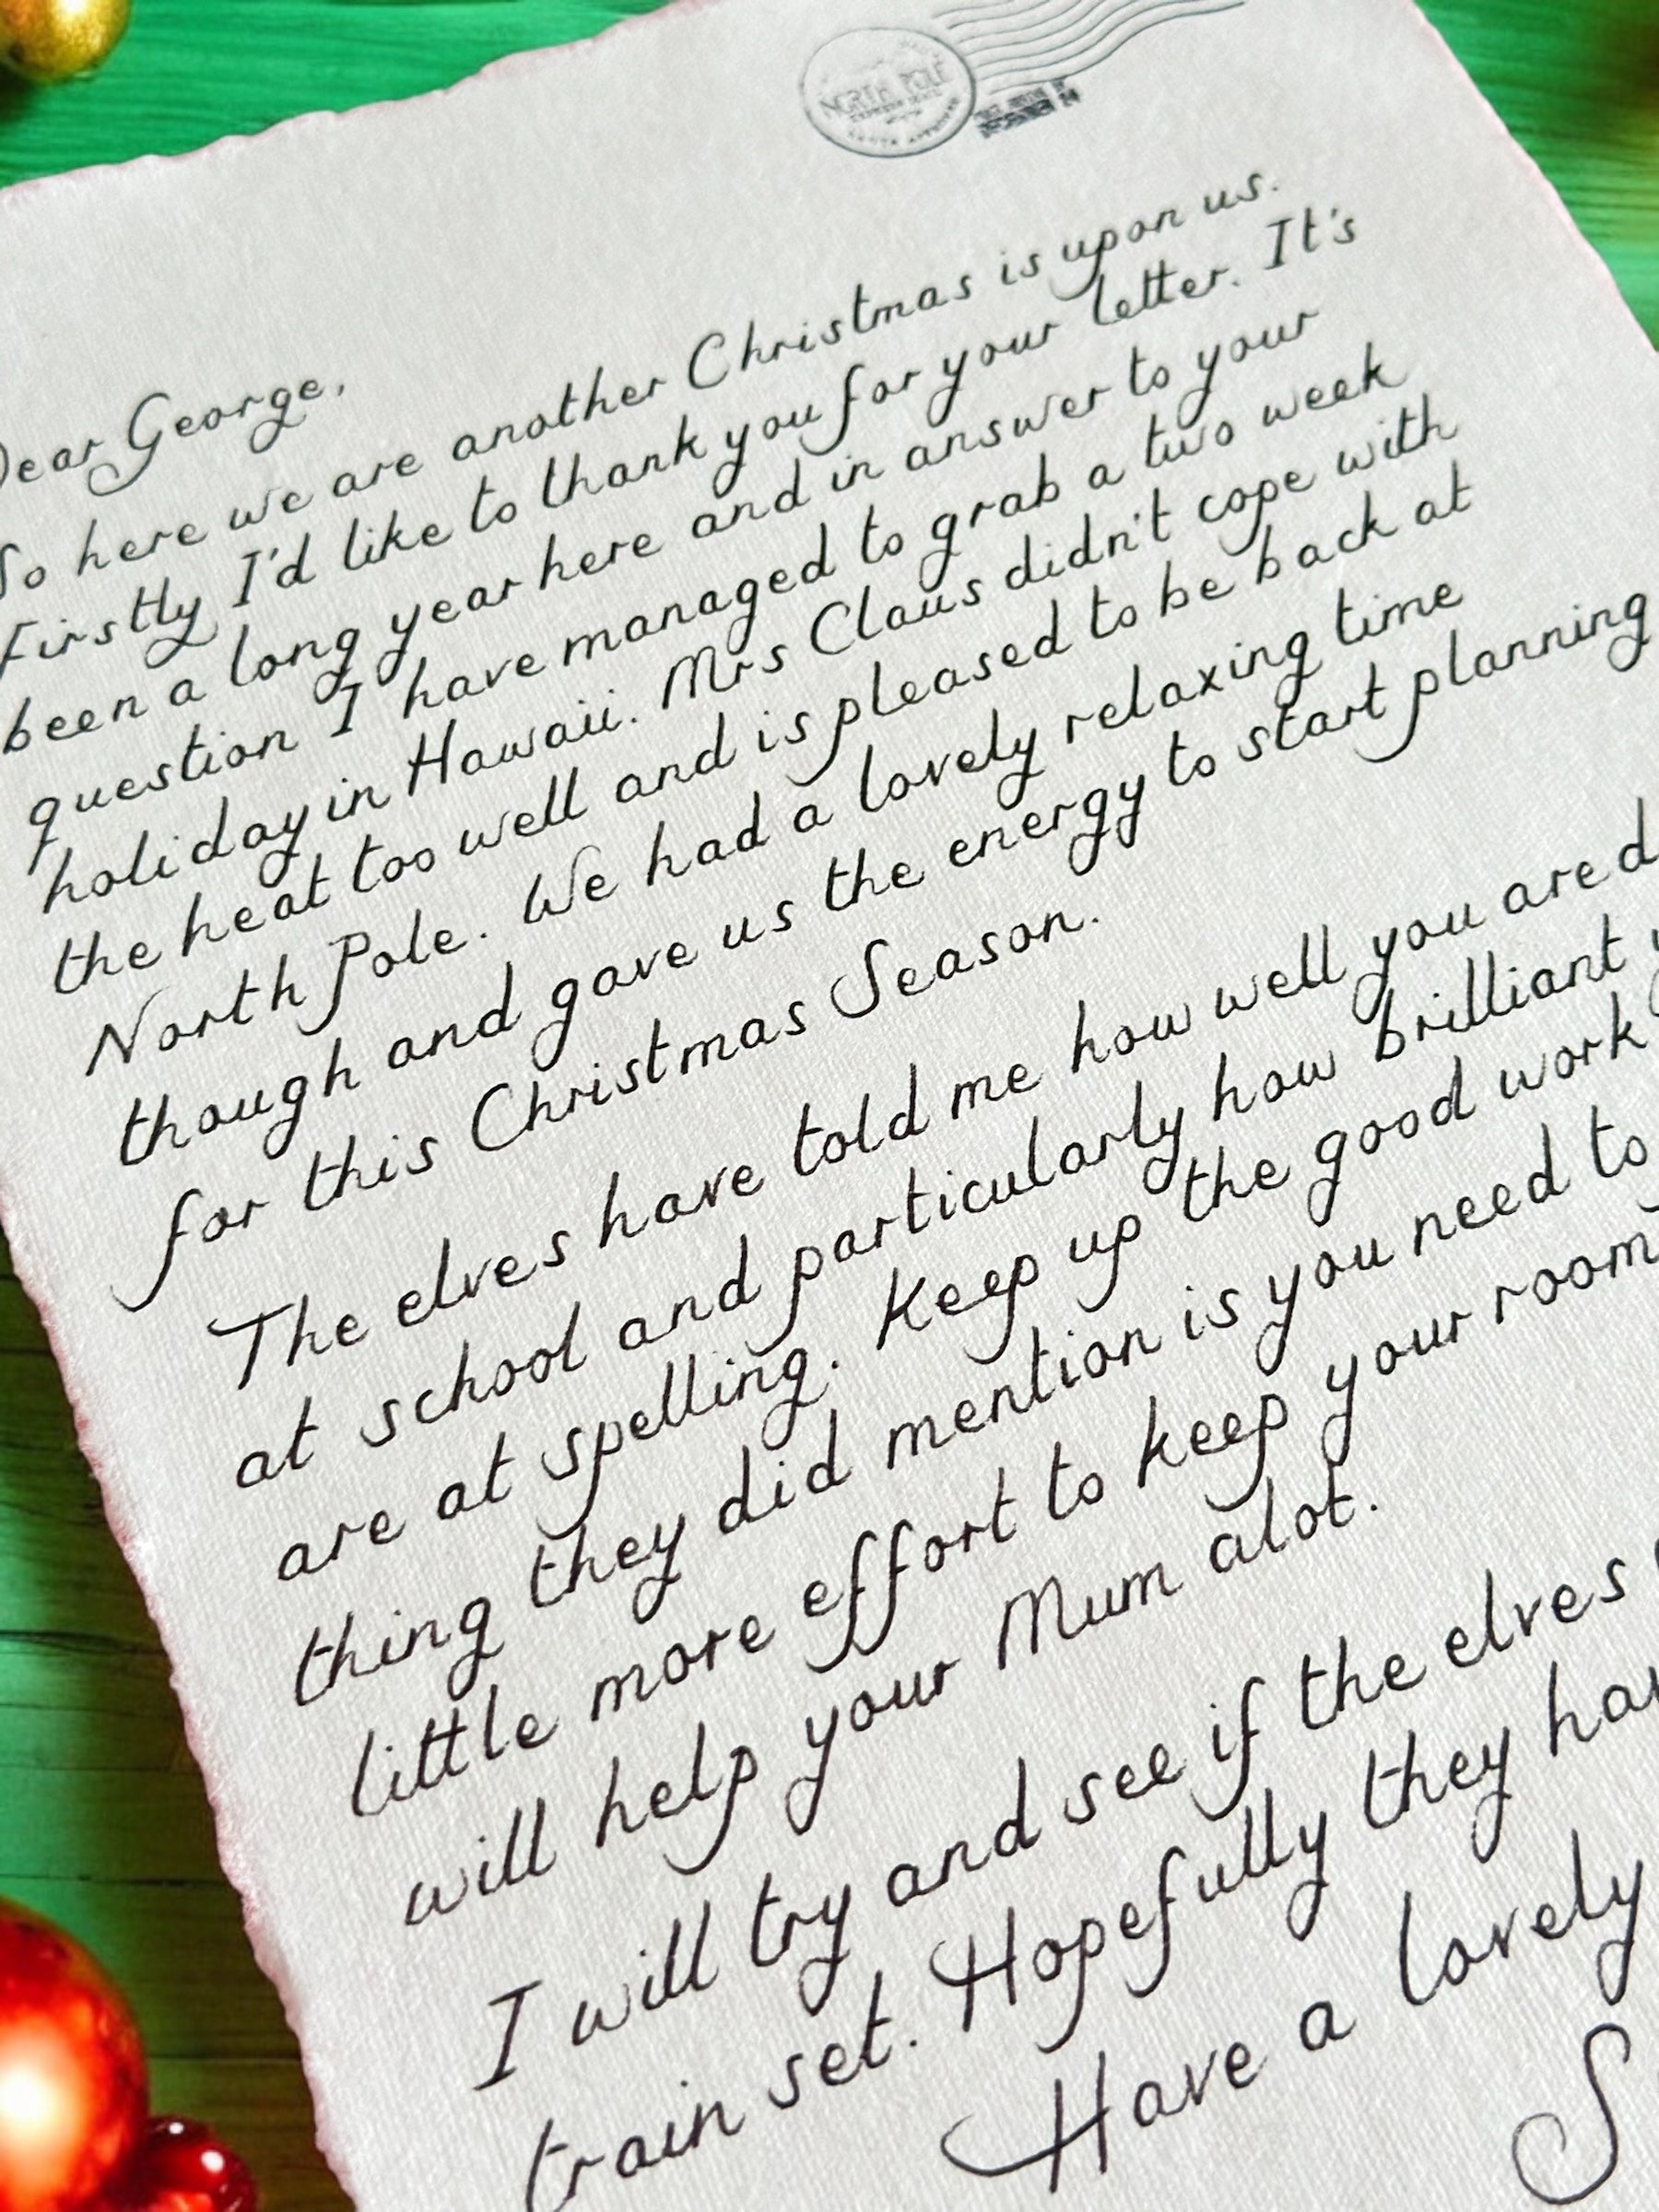 NORTH POLE
Dear George,
So here we are another Christmas is upon us.
Firstly I'd like to thank you for your letter. It's
been a long year here and in answer to your
question I have managed to grab a two week
holiday in Hawaii. Mrs Claus didn't cope with
the heat too well and is pleased to be back at
North Pole. We had a lovely relaxing time
though and gave us the energy to start planning
for this Christmas Season.
The elves have told me how well you are d
at school and particularly how brilliant y
are at spelling. Keep up the good work
thing they did mention is you need to
little more effort to keep your room
will help your Mum alot.
I will try and see if the elves
train set. Hopefully they hav
Have a lovely
S